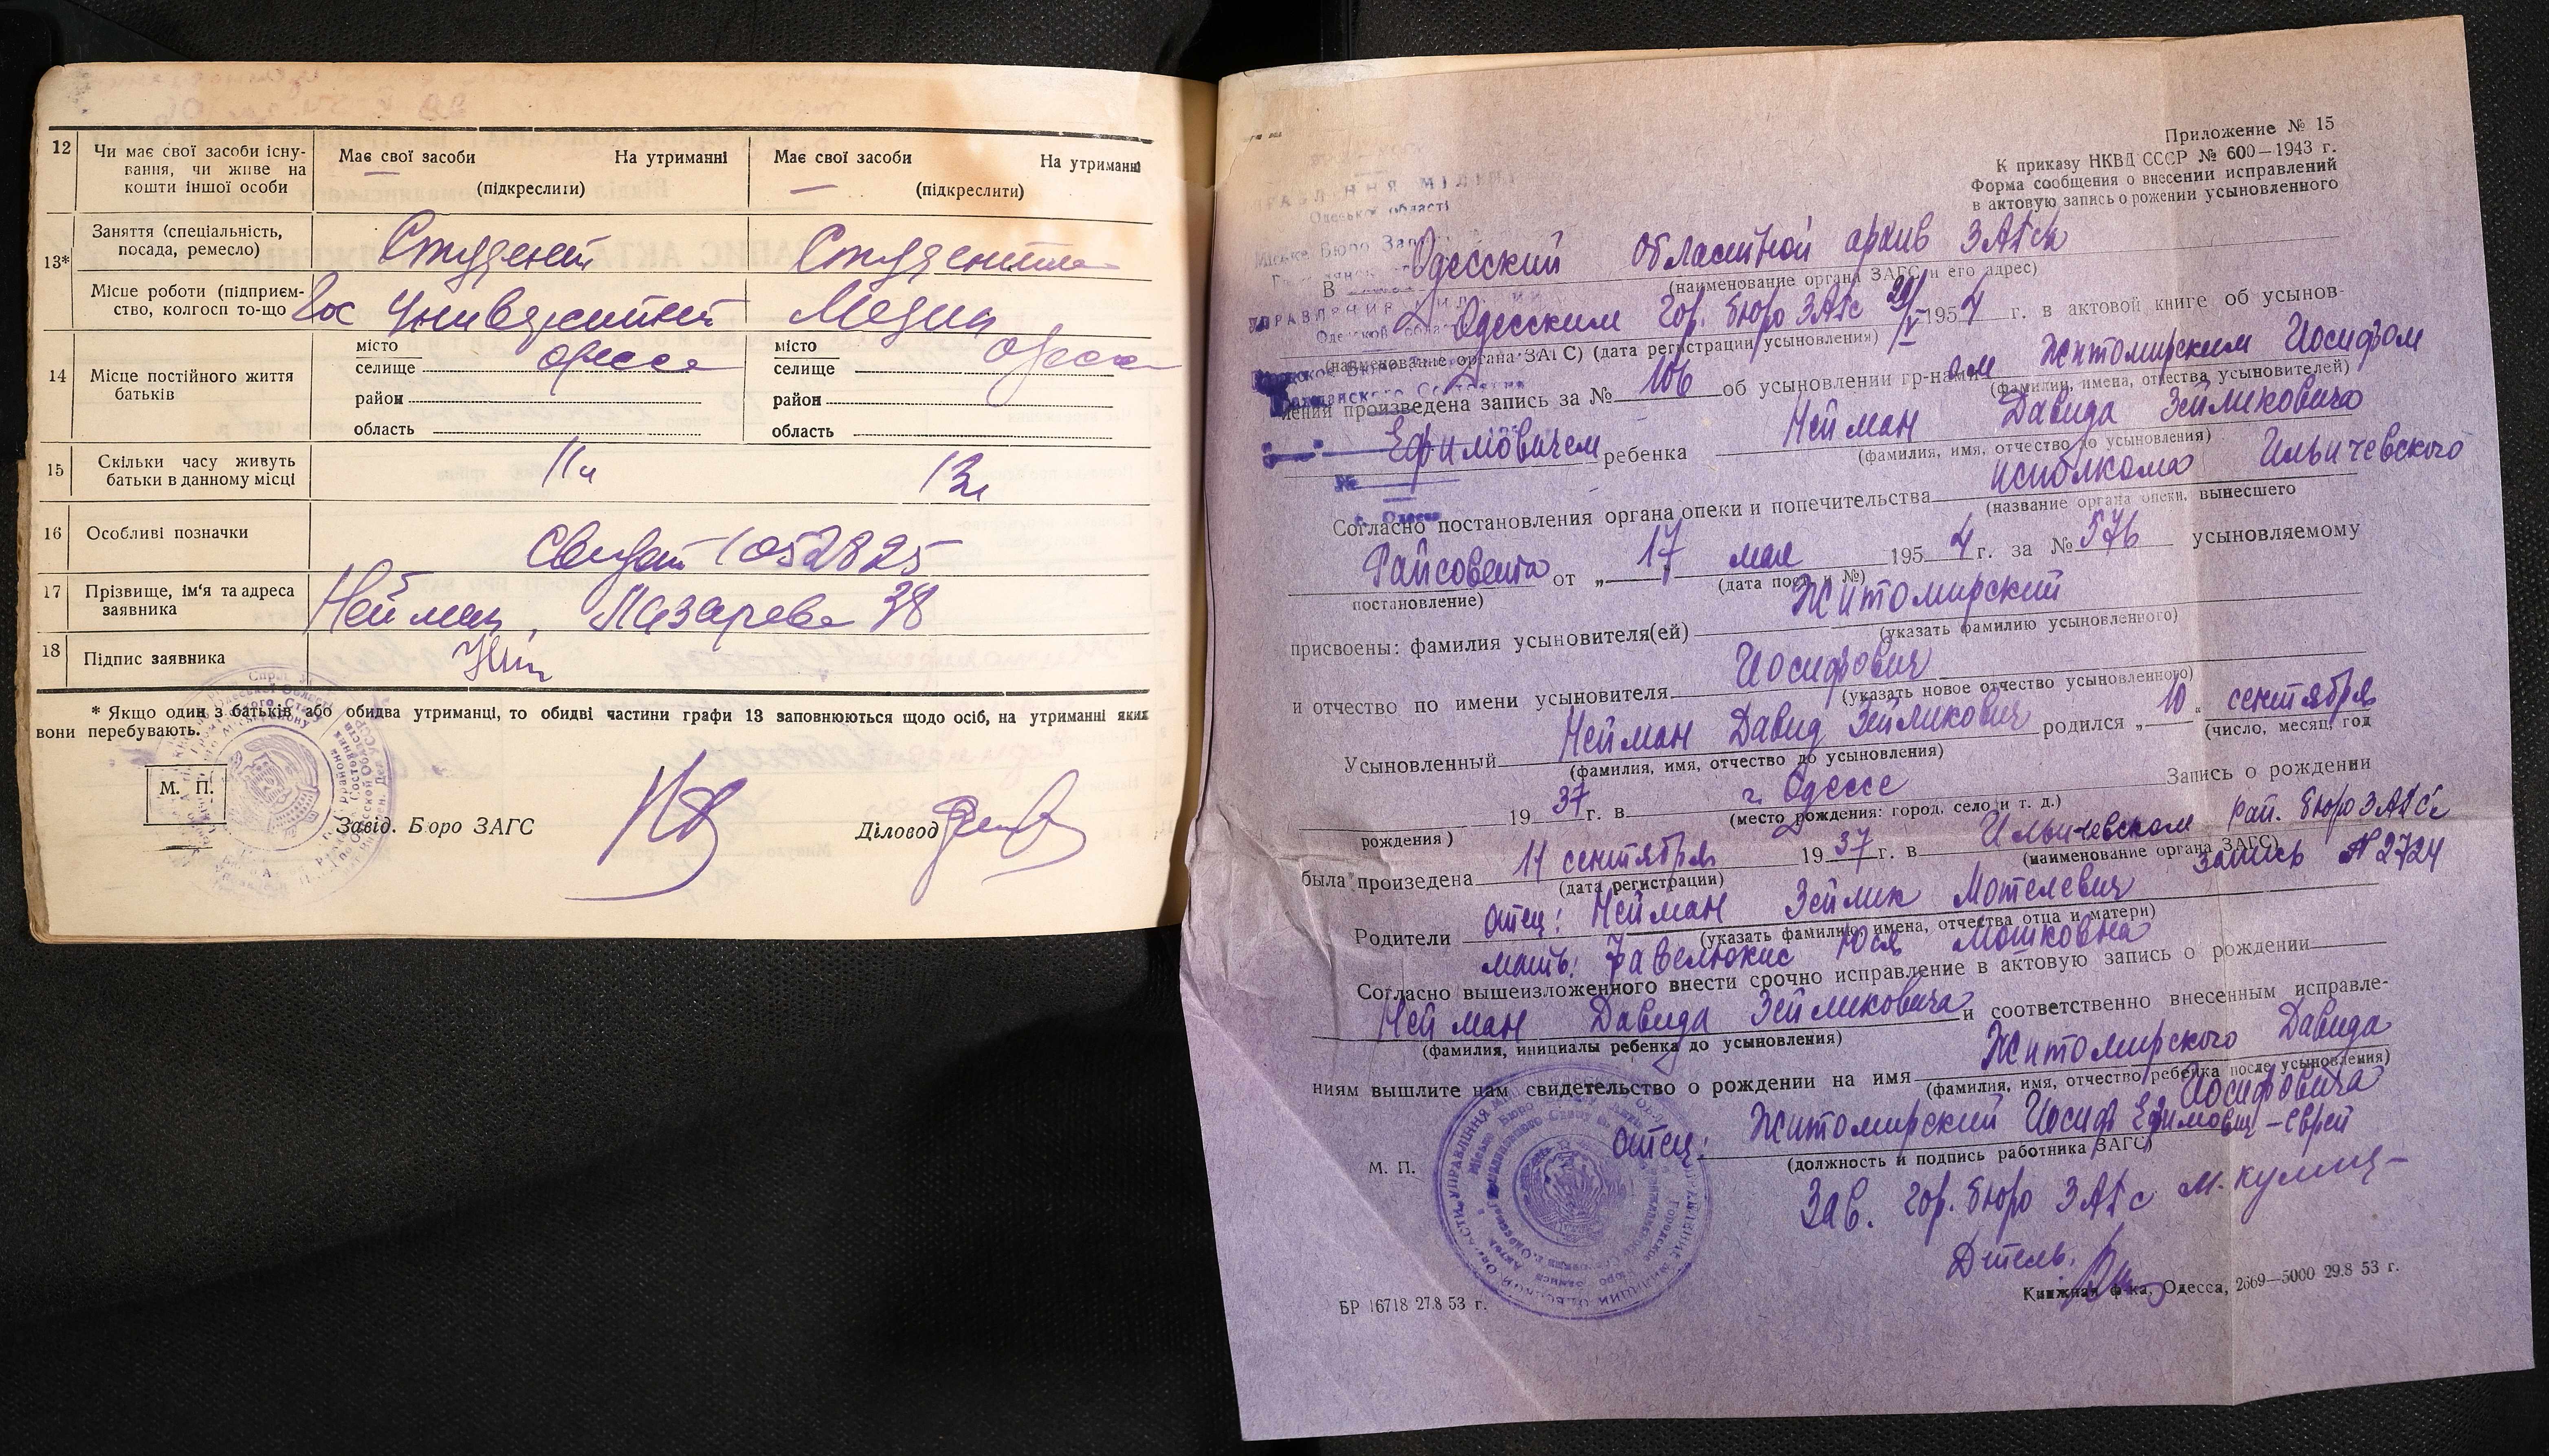 12 Чи має свої засоби існу- Має свої засоби На утриманні Має свої засоби На утриманні
вання, чи живе на
кошти іншої особи (підкреслити) (підкреслити)
13* Заняття (спеціальність,
посада, ремесло) Студент Студентка
Місце роботи (підприєм-
ство, колгосп то-що Гос Университет Медин
14 Місце постійного життя
батьків
місто Одесса місто Одесса
селище селище
район район
область область
15 Скільки часу живуть
батьки в данному місці
16 Особливі позначки
Свидет 1052825
17 Прізвище, ім'я та адреса
заявника Нейман, Лазарева 38
18 Підпис заявника
* Якщо один з батьків або обидва утриманці, то обидві частини графи 13 заповнюються щодо осіб, на утриманні яких
вони перебувають.
М. П.
Завід. Бюро ЗАГС Діловод
Приложение № 15
К приказу НКВД СССР № 600—1943 г.
Форма сообщения о внесении исправлений
в актовую запись о рожении усыновленного
В Одесский областной архив ЗАГса
(наименование органа ЗАГС и его адрес)
Одесским гор. бюро ЗАГс 1954 г. в актовой книге об усынов-
(наименование органа ЗАГС) (дата регистрации усыновления)
лении произведена запись за № 106 об усыновлении гр-нами Житомирским Иосифом
(фамилии, имена, отчества усыновителей)
Ефимовичем ребенка Нейман Давида Зейликовича
(фамилия, имя, отчество до усыновления)
Согласно постановления органа опеки и попечительства исполкома Ильичевского
(название органа опеки, вынесшего
Райсовета от „17 мая 1954 г. за № 576 усыновляемому
постановление) (дата пост. и №)
присвоены: фамилия усыновителя(ей) Житомирский
(указать фамилию усыновленного)
и отчество по имени усыновителя Иосифович
(указать новое отчество усыновленного)
Усыновленный Нейман Давид Зейликович родился „10" сентября
(фамилия, имя, отчество до усыновления) (число, месяц, год
1937 г. в г. Одессе Запись о рождении
рождения) (место рождения: город, село и т. д.)
была произедена 11 сентября 1937 г. в Ильичевском рай. бюро ЗАГС'е
(дата регистрации) (наименование органа ЗАГС)
запись № 2724
Родители отец: Нейман Зейлик Мотелевич
(указать фамилию, имена, отчества отца и матери)
мать: Фавелюкис Юся Мошковна
Согласно вышеизложенного внести срочно исправление в актовую запись о рождении
Нейман Давида Зейликовича и соответственно внесенным исправле-
(фамилия, инициалы ребенка до усыновления)
ниям вышлите нам свидетельство о рождении на имя Житомирского Давида
(фамилия, имя, отчество ребенка после усыновления)
Иосифовича
отец: Житомирский Иосиф Ефимович - еврей
М. П. (должность и подпись работника ЗАГС)
Зав. гор. бюро ЗАГс
Д-тель.
БР 16718 27.8 53 г.
Книжная ф-ка, Одесса, 2669—5000 29.8 53 г.